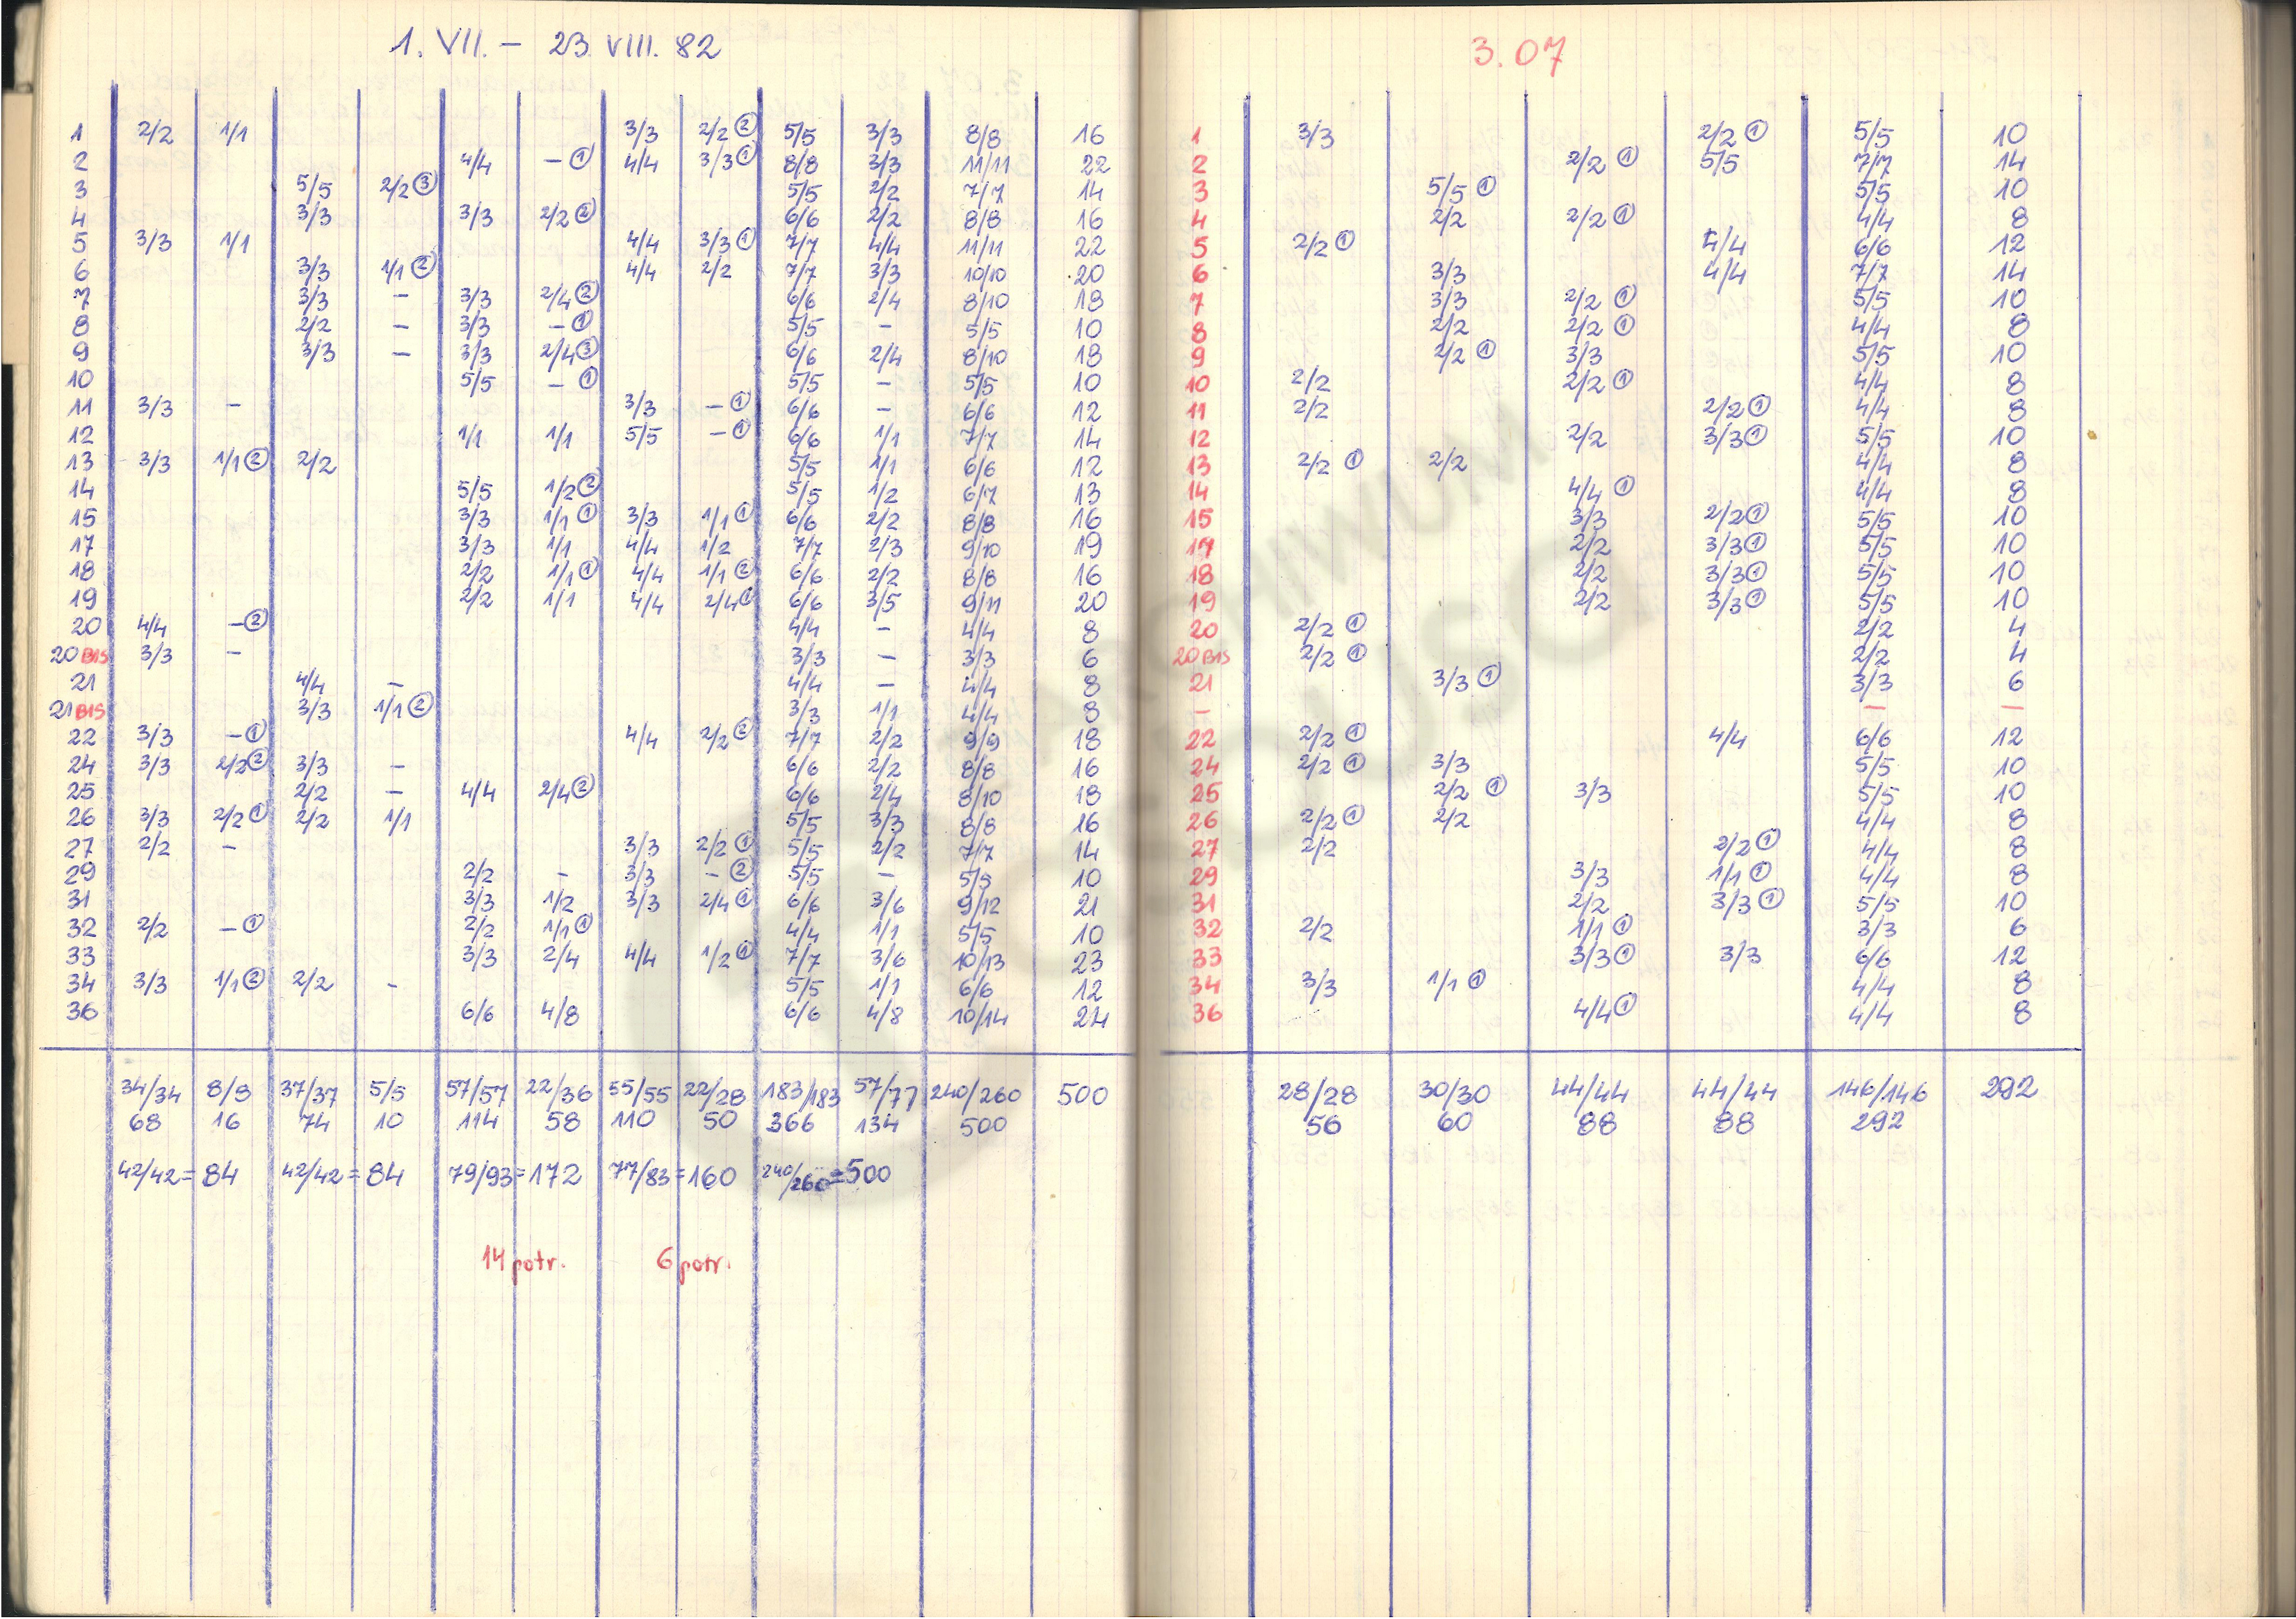 1. VII. – 23 VIII. 82
1 2/2 1/1 3/3 2/2 ② 5/5 3/3 8/8 16
2 4/4 – ① 4/4 3/3 ① 8/8 3/3 11/11 22
3 5/5 2/2 ③ 5/5 2/2 7/7 14
4 3/3 3/3 2/2 ② 6/6 2/2 8/8 16
5 3/3 1/1 4/4 3/3 ① 7/7 4/4 11/11 22
6 3/3 1/1 ② 4/4 2/2 7/7 3/3 10/10 20
7 3/3 – 3/3 2/4 ② 6/6 2/4 8/10 18
8 2/2 – 3/3 – ① 5/5 – 5/5 10
9 3/3 – 3/3 2/4 ③ 6/6 2/4 8/10 18
10 5/5 – ① 5/5 – 5/5 10
11 3/3 – 3/3 – ① 6/6 – 6/6 12
12 1/1 1/1 5/5 – ① 6/6 1/1 7/7 14
13 3/3 1/1 ② 2/2 5/5 1/1 6/6 12
14 5/5 1/2 ② 5/5 1/2 6/7 13
15 3/3 1/1 ① 3/3 1/1 ① 6/6 2/2 8/8 16
17 3/3 1/1 4/4 1/2 7/7 2/3 9/10 19
18 2/2 1/1 ① 4/4 1/1 ② 6/6 2/2 8/8 16
19 2/2 1/1 4/4 2/4 ① 6/6 3/5 9/11 20
20 4/4 – ② 4/4 – 4/4 8
20 BIS 3/3 – 3/3 – 3/3 6
21 4/4 – 4/4 – 4/4 8
21 BIS 3/3 1/1 ② 3/3 1/1 4/4 8
22 3/3 – ① 4/4 2/2 ② 7/7 2/2 9/9 18
24 3/3 2/2 ② 3/3 – 6/6 2/2 8/8 16
25 2/2 – 4/4 2/4 ② 6/6 2/4 8/10 18
26 3/3 2/2 ① 2/2 1/1 5/5 3/3 8/8 16
27 2/2 – 3/3 2/2 ① 5/5 2/2 7/7 14
29 2/2 – 3/3 – ② 5/5 – 5/5 10
31 3/3 1/2 3/3 2/4 ① 6/6 3/6 9/12 21
32 2/2 – ① 2/2 1/1 ① 4/4 1/1 5/5 10
33 3/3 2/4 4/4 1/2 ① 7/7 3/6 10/13 23
34 3/3 1/1 ② 2/2 – 5/5 1/1 6/6 12
36 6/6 4/8 6/6 4/8 10/14 24
34/34 8/8 37/37 5/5 57/57 22/36 55/55 22/28 183/183 57/77 240/260 500
68 16 74 10 114 58 110 50 366 134 500
42/42 = 84 42/42 = 84 79/93 = 172 77/83 = 160 240/260 = 500
14 potr. 6 potr.
3.07
1 3/3 2/2 ① 5/5 10
2 2/2 ① 5/5 7/7 14
3 5/5 ① 5/5 10
4 2/2 2/2 ① 4/4 8
5 2/2 ① 4/4 6/6 12
6 3/3 4/4 7/7 14
7 3/3 2/2 ① 5/5 10
8 2/2 2/2 ① 4/4 8
9 2/2 ① 3/3 5/5 10
10 2/2 2/2 ① 4/4 8
11 2/2 2/2 ① 4/4 8
12 2/2 3/3 ① 5/5 10
13 2/2 ① 2/2 4/4 8
14 4/4 ① 4/4 8
15 3/3 2/2 ① 5/5 10
17 2/2 3/3 ① 5/5 10
18 2/2 3/3 ① 5/5 10
19 2/2 3/3 ① 5/5 10
20 2/2 ① 2/2 4
20 BIS 2/2 ① 2/2 4
21 3/3 ① 3/3 6
– – –
22 2/2 ① 4/4 6/6 12
24 2/2 ① 3/3 5/5 10
25 2/2 ① 3/3 5/5 10
26 2/2 ① 2/2 4/4 8
27 2/2 2/2 ① 4/4 8
29 3/3 1/1 ① 4/4 8
31 2/2 3/3 ① 5/5 10
32 2/2 1/1 ① 3/3 6
33 3/3 ① 3/3 6/6 12
34 3/3 1/1 ① 4/4 8
36 4/4 ① 4/4 8
28/28 30/30 44/44 44/44 146/146 292
56 60 88 88 292